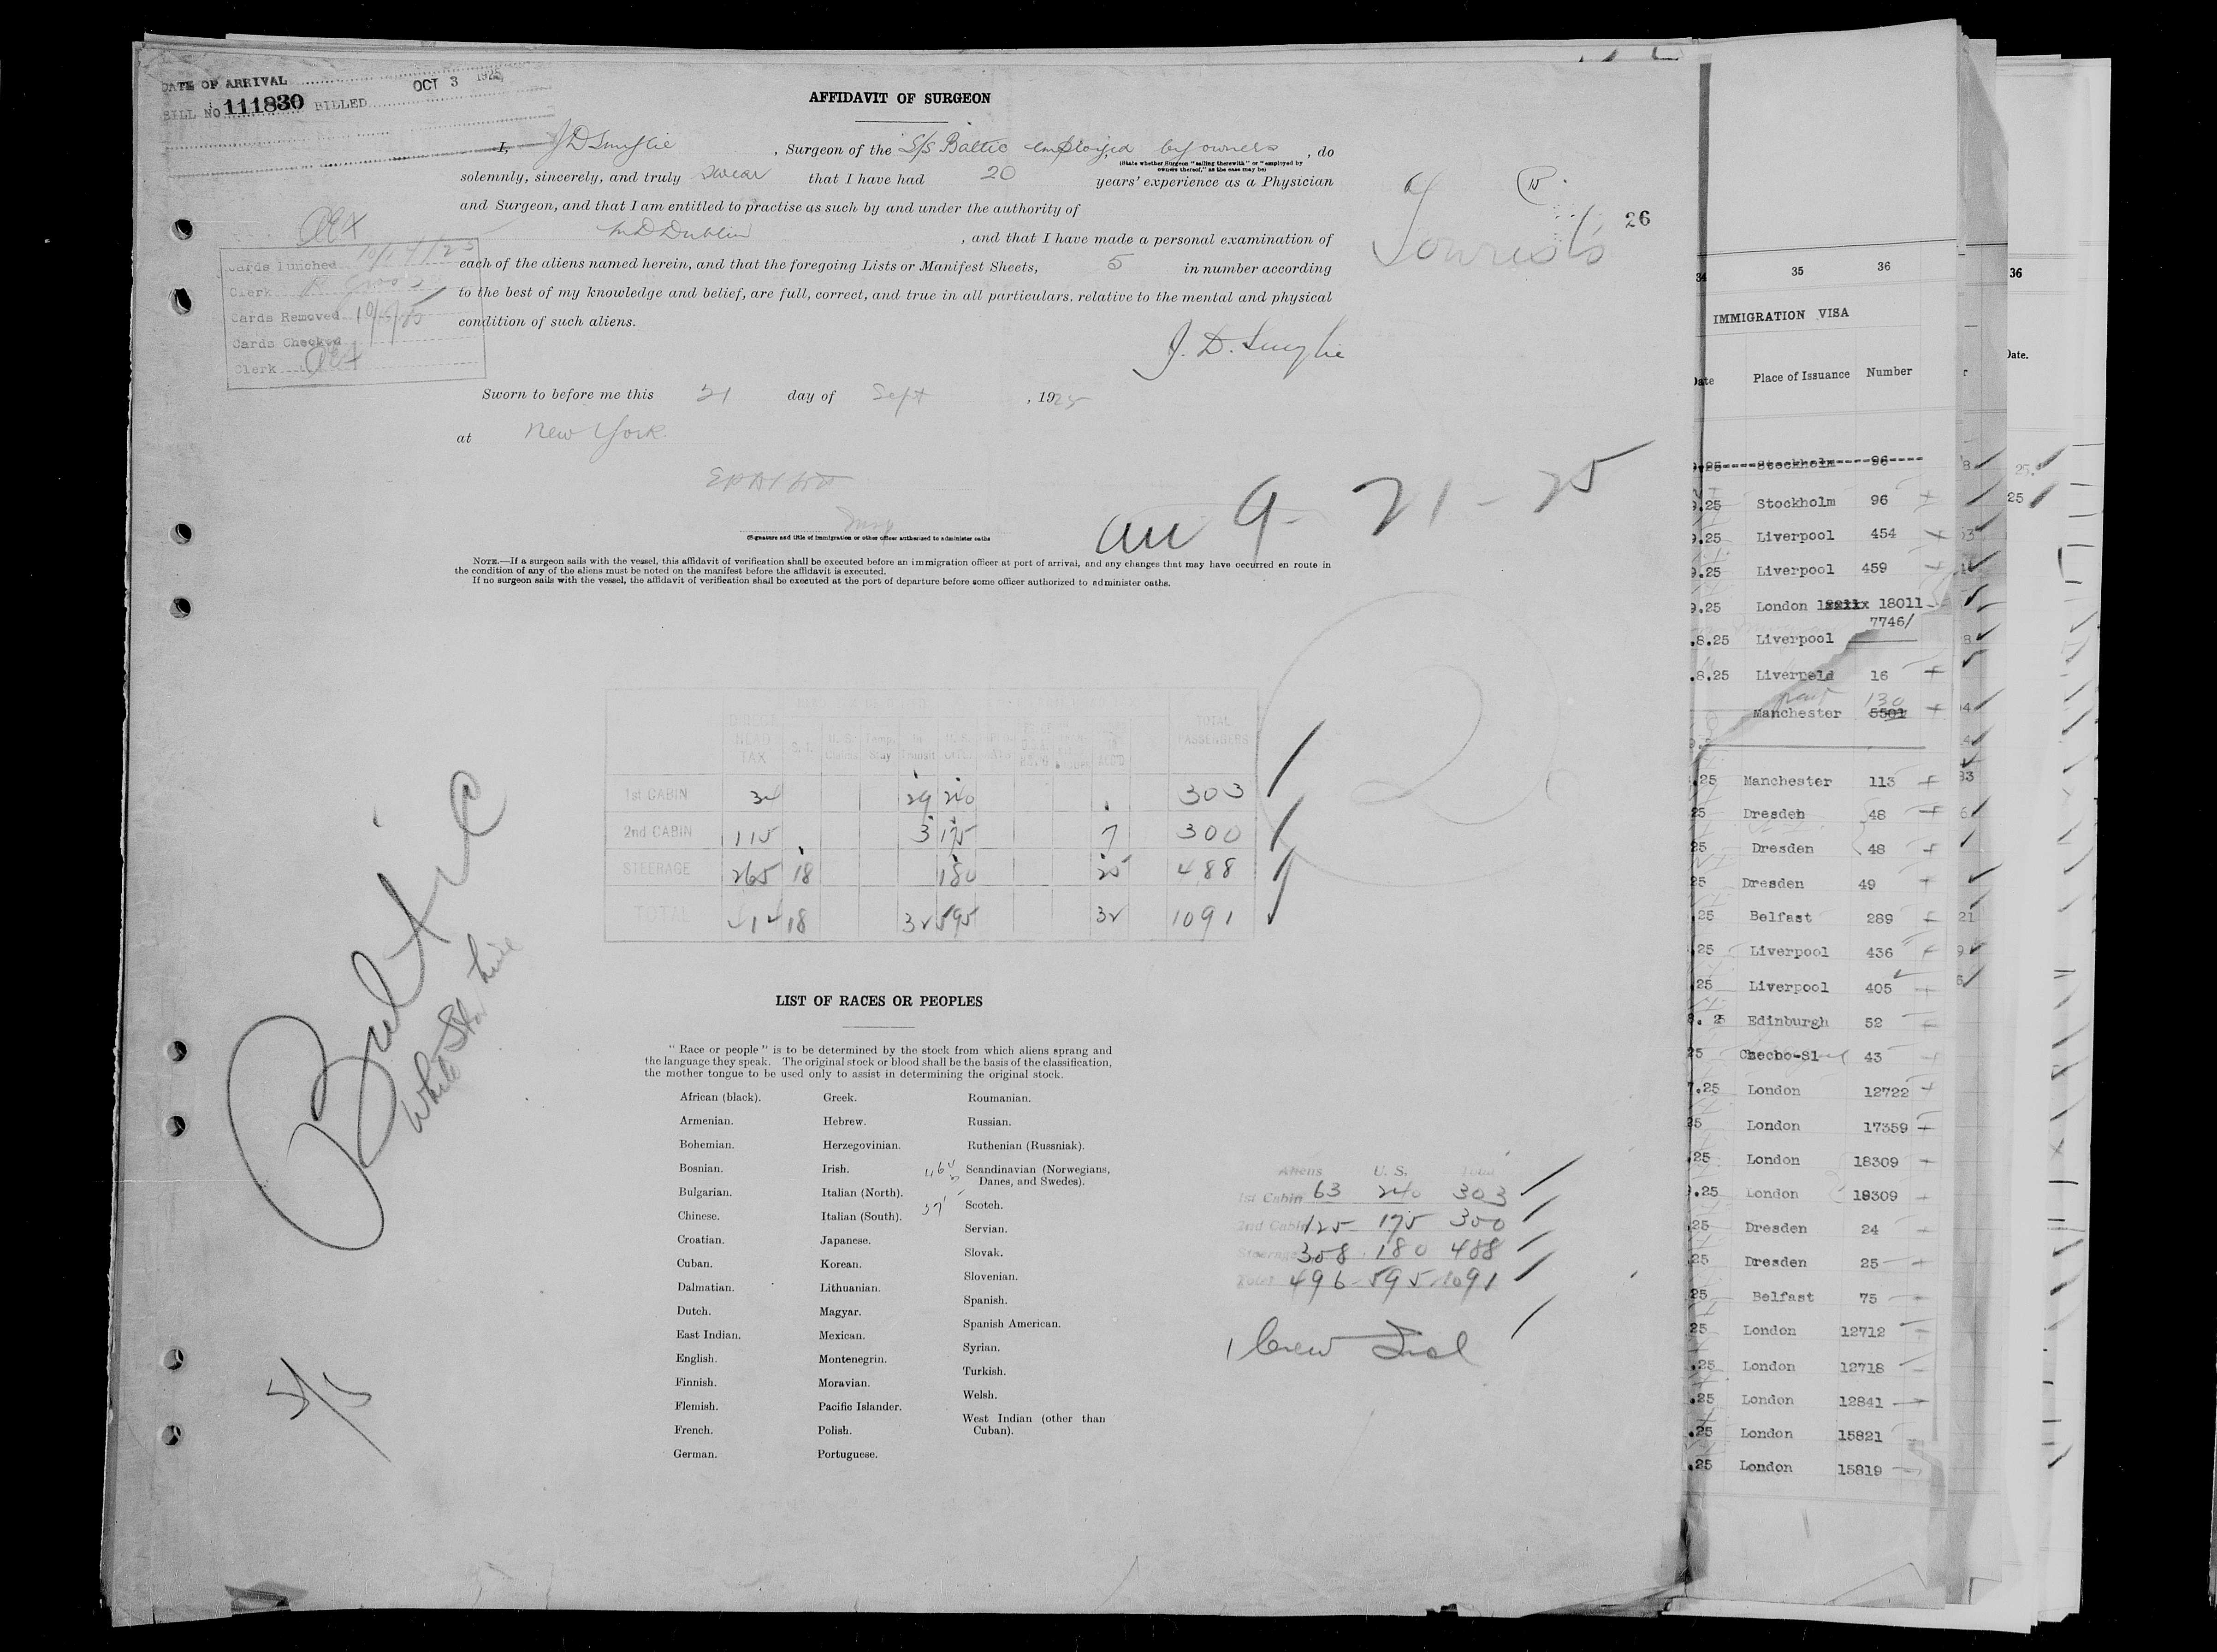 DATE OF ARRIVAL OCT 3 1925
BILL NO 111830 BILLED
AFFIDAVIT OF SURGEON
I, , Surgeon of the S/S Baltic employed by owners , do
(State whether Surgeon "sailing therewith" or "employed by
owners thereof," as the case may be)
solemnly, sincerely, and truly swear that I have had 20 years' experience as a Physician
and Surgeon, and that I am entitled to practise as such by and under the authority of
MD Dublin , and that I have made a personal examination of
each of the aliens named herein, and that the foregoing Lists or Manifest Sheets, 5 in number according
to the best of my knowledge and belief, are full, correct, and true in all particulars, relative to the mental and physical
condition of such aliens.
J. D.
Sworn to before me this 21 day of Sept , 1925
at New York
(Signature and title of immigration or other officer authorized to administer oaths
NOTE.—If a surgeon sails with the vessel, this affidavit of verification shall be executed before an immigration officer at port of arrival, and any changes that may have occurred en route in
the condition of any of the aliens must be noted on the manifest before the affidavit is executed.
If no surgeon sails with the vessel, the affidavit of verification shall be executed at the port of departure before some officer authorized to administer oaths.
Cards Punched
Clerk
Cards Removed
Cards Checked
Clerk
Tourists
26
9-21-25
2
DIRECT HEAD TAX TOTAL PASSENGERS
1st CABIN 34 29 240 303
2nd CABIN 115 3 175 7 300
STEERAGE 265 18 180 25 488
TOTAL 414 18 32 595 32 1091
Baltic
White Star Line
LIST OF RACES OR PEOPLES
" Race or people " is to be determined by the stock from which aliens sprang and
the language they speak. The original stock or blood shall be the basis of the classification,
the mother tongue to be used only to assist in determining the original stock.
African (black).
Armenian.
Bohemian.
Bosnian.
Bulgarian.
Chinese.
Croatian.
Cuban.
Dalmatian.
Dutch.
East Indian.
English.
Finnish.
Flemish.
French.
German.
Greek.
Hebrew.
Herzegovinian.
Irish.
Italian (North).
Italian (South).
Japanese.
Korean.
Lithuanian.
Magyar.
Mexican.
Montenegrin.
Moravian.
Pacific Islander.
Polish.
Portuguese.
Roumanian.
Russian.
Ruthenian (Russniak).
Scandinavian (Norwegians,
Danes, and Swedes).
Scotch.
Servian.
Slovak.
Slovenian.
Spanish.
Spanish American.
Syrian.
Turkish.
Welsh.
West Indian (other than
Cuban).
Aliens U. S. Total
1st Cabin 63 240 303
2nd Cabin 125 175 300
Steerage 308 180 488
Total 496 595 1091
1 Crew
34 35 36
IMMIGRATION VISA
Date Place of Issuance Number
9.25 Stockholm 96
9.25 Stockholm 96
9.25 Liverpool 454
9.25 Liverpool 459
9.25 London 18011
7746/
.8.25 Liverpool
.8.25 Liverpeld 16
130
Manchester 5501
.25 Manchester 113
25 Dresden 48
25 Dresden 48
25 Dresden 49
.25 Belfast 289
.25 Liverpool 436
25 Liverpool 405
8. 25 Edinburgh 52
25 Checho-Sl 43
7.25 London 12722
25 London 17359
.25 London 18309
.25 London 18309
25 Dresden 24
25 Dresden 25
25 Belfast 75
25 London 12712
.25 London 12718
.25 London 12841
.25 London 15821
.25 London 15819
36
Date.
25.
25